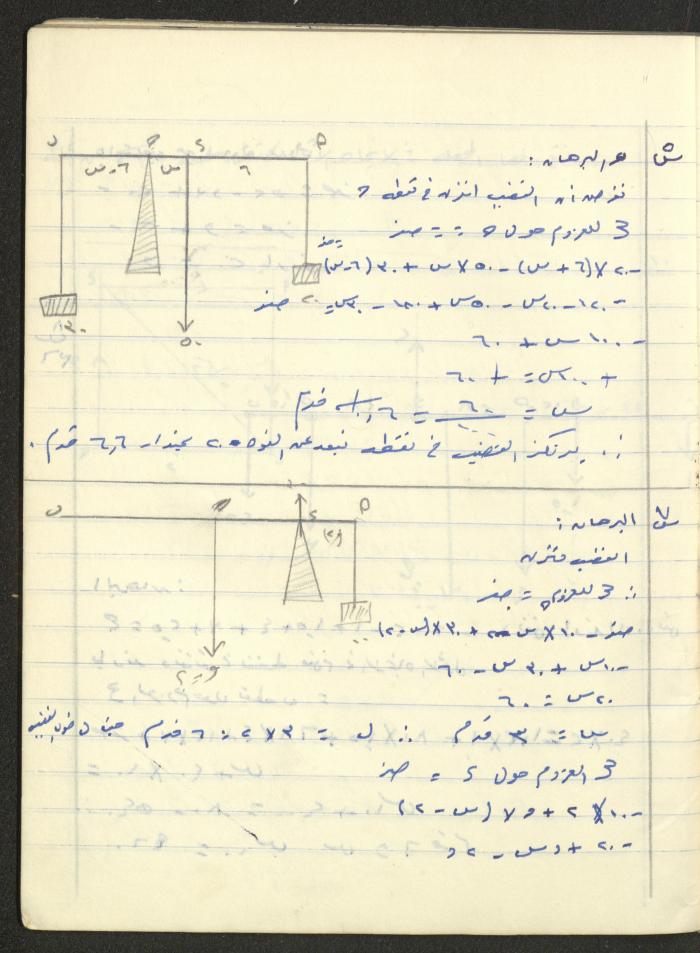 س٥ البرهان :
نفرض ان القضيب اتزن في نقطة ح
ح للعزوم حول ح = صفر
- ٢٠ × (٦ + س) - ٥٠ × س + ٣٠ (٦ - س) = صفر
- ١٢٠ - ٢٠س - ٥٠س + ١٨٠ - ٣٠س = صفر
- ١٠٠س + ٦٠
+ ١٠٠س = + ٦٠
س = ٦٠ = ٦ر قدم
∴ يرتكز القضيب في نقطة تبعد عن القوة ٢٠ بمقدار ٦,٦ قدم .
ب ح د ٦ أ
٦-س س
٣٠ ٥٠ ٢٠
س٧ البرهان :
القضيب متزن
∴ ح للعزوم = صفر
صفر - ١٠ × س + ٣٠ × (س - ٢)
- ١٠س + ٣٠س - ٦٠
٢٠س = ٦٠
س = ٣ قدم ∴ ل = ٣ × ٢ = ٦ قدم حيث ل طول القضيب
ح العزوم حول د = صفر
- ١٠ × ٢ + و × (س - ٢)
- ٢٠ + وس - ٢و
ب د (٢) أ
و =